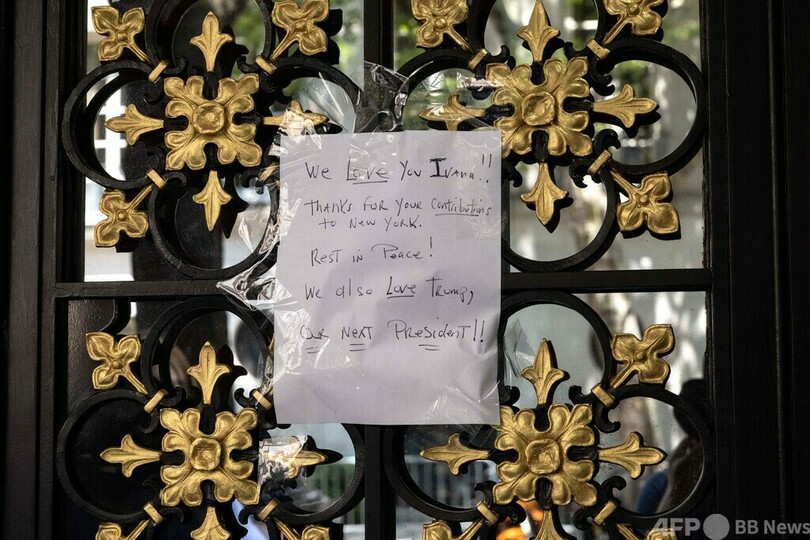 We Love You IVana!!
THANKS FOR YOUR Contributions
to NEW YORK.
REST in Peace!
We also Love Trump,
OUR NEXT PRESIDENT!!
AFP BB News